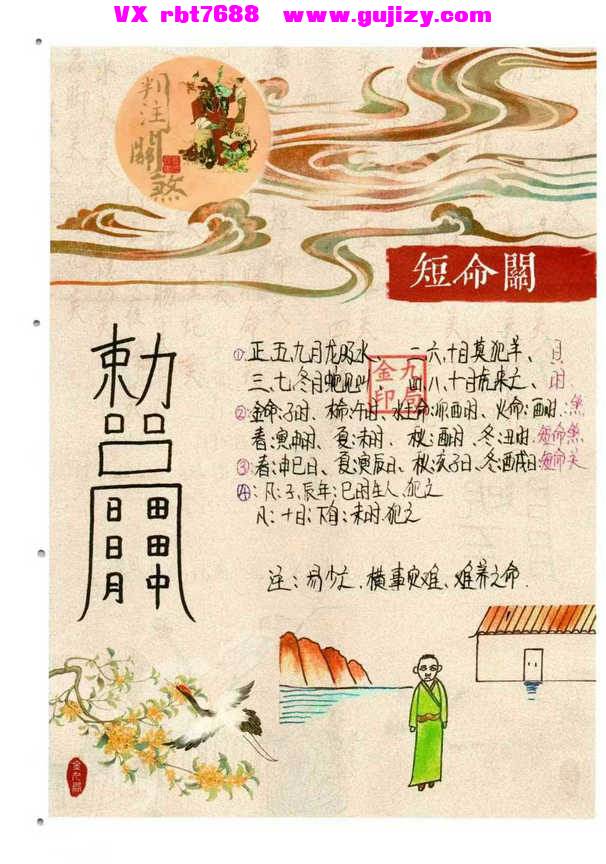 VX rbt7688 www.gujizy.com
判注
關煞
短命關
勅
日 田
日 田
月 中
九局
金印
①正、五、九月龙 水、 二、六、十月莫犯羊、 月
三、七、冬月蛇 四、八、十月虎来 、 时
②金命:子时、木命:午时 水土命: 酉时、火命:酉时.煞
春:寅申时、夏:未时、秋:酉时、冬:丑时.短命煞
③春:申巳日、夏:寅辰日、秋:亥子日、冬:酉戌日:短命关
④:凡:子、辰年:巳时生人、犯之
凡:十日:下旬:未时.犯之
注:易少亡、横事灾难、难养之命.